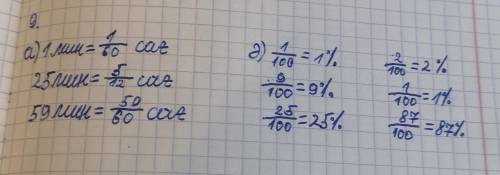 9.
а) 1 мин = 1/60 саг
25 мин = 5/12 саг
59 мин = 59/60 саг
б) 1/100 = 1%
9/100 = 9%
25/100 = 25%
2/100 = 2%
1/100 = 1%
87/100 = 87%